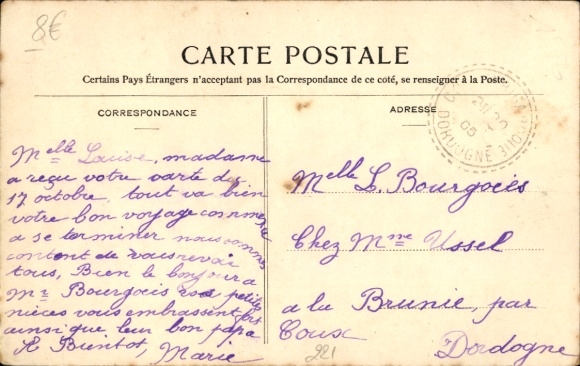 8€
CARTE POSTALE
Certains Pays Étrangers n'acceptant pas la Correspondance de ce coté, se renseigner à la Poste.
CORRESPONDANCE
ADRESSE
DORDOGNE
Melle Louise, madame
a reçu votre carte du
17 octobre, tout va bien
votre bon voyage commence
a se terminer nous sommes
content de vous revoir
tous, Bien le bonjour a
Mr Bourgoies vos petites
nièces vous embrassent fort
ainsi que leur bon papa
A Bientot, Marie
Melle L. Bourgoies
Chez Mme Ussel
a la Brunie, par
Coux
Dordogne
221